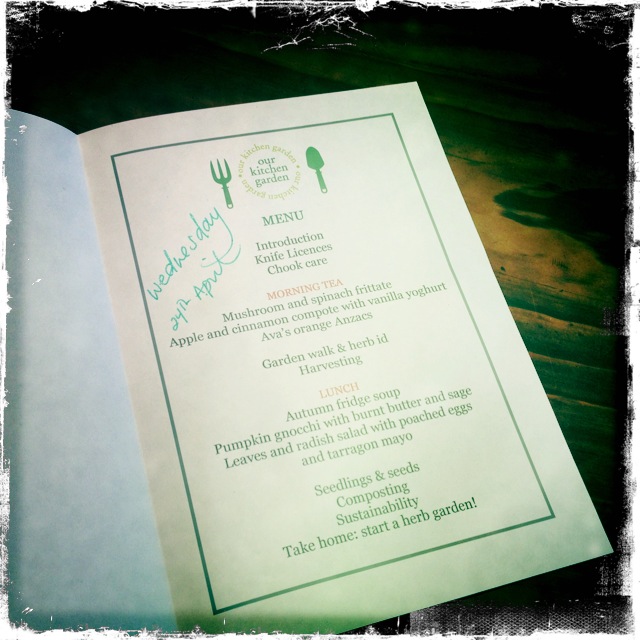 our kitchen garden • our kitchen garden •
our
kitchen
garden
MENU
Wednesday
24th April
Introduction
Knife Licences
Chook care
MORNING TEA
Mushroom and spinach frittate
Apple and cinnamon compote with vanilla yoghurt
Ava's orange Anzacs
Garden walk & herb id
Harvesting
LUNCH
Autumn fridge soup
Pumpkin gnocchi with burnt butter and sage
Leaves and radish salad with poached eggs
and tarragon mayo
Seedlings & seeds
Composting
Sustainability
Take home: start a herb garden!